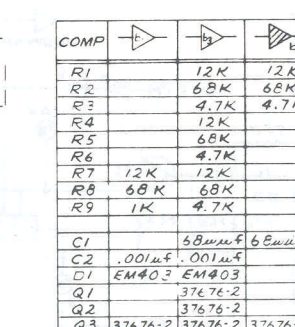 COMP t b2 b
R1 12K 12K
R2 68K 68K
R3 4.7K 4.7
R4 12K
R5 68K
R6 4.7K
R7 12K 12K
R8 68K 68K
R9 1K 4.7K
C1 68uuf 68uu
C2 .001uf .001uf
D1 EM403 EM403
Q1 37676-2
Q2 37676-2
Q3 37676-2 37676-2 37676